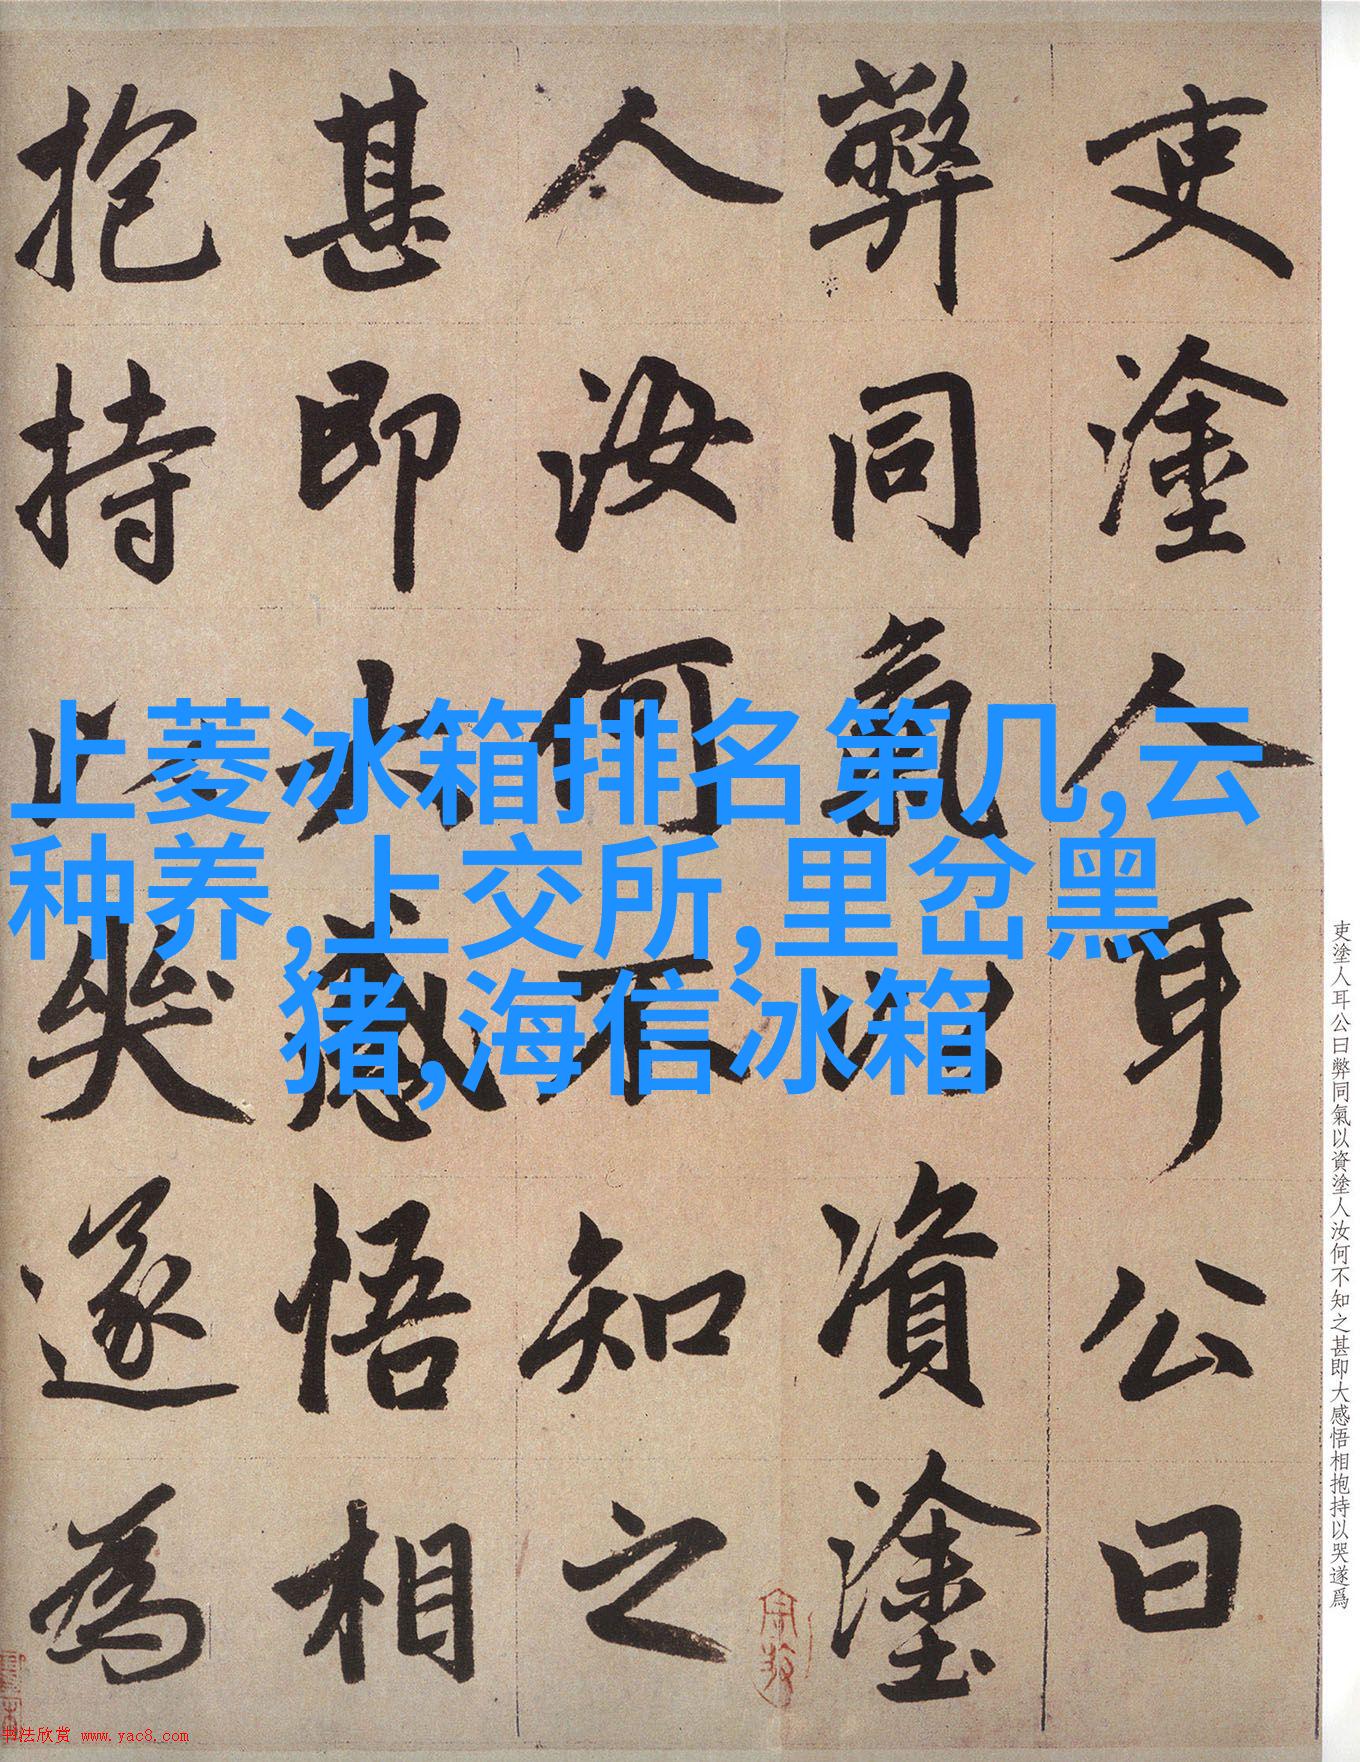 吏塗人耳公曰
弊同氣以資塗
人汝何不知之
甚即大感悟相
抱持以哭遂為
上菱冰箱排名第几,云
种养,上交所,里岔黑
猪,海信冰箱
吏塗人耳公曰弊同氣以資塗人汝何不知之甚即大感悟相抱持以哭遂爲
书法欣赏 www.yac8.com